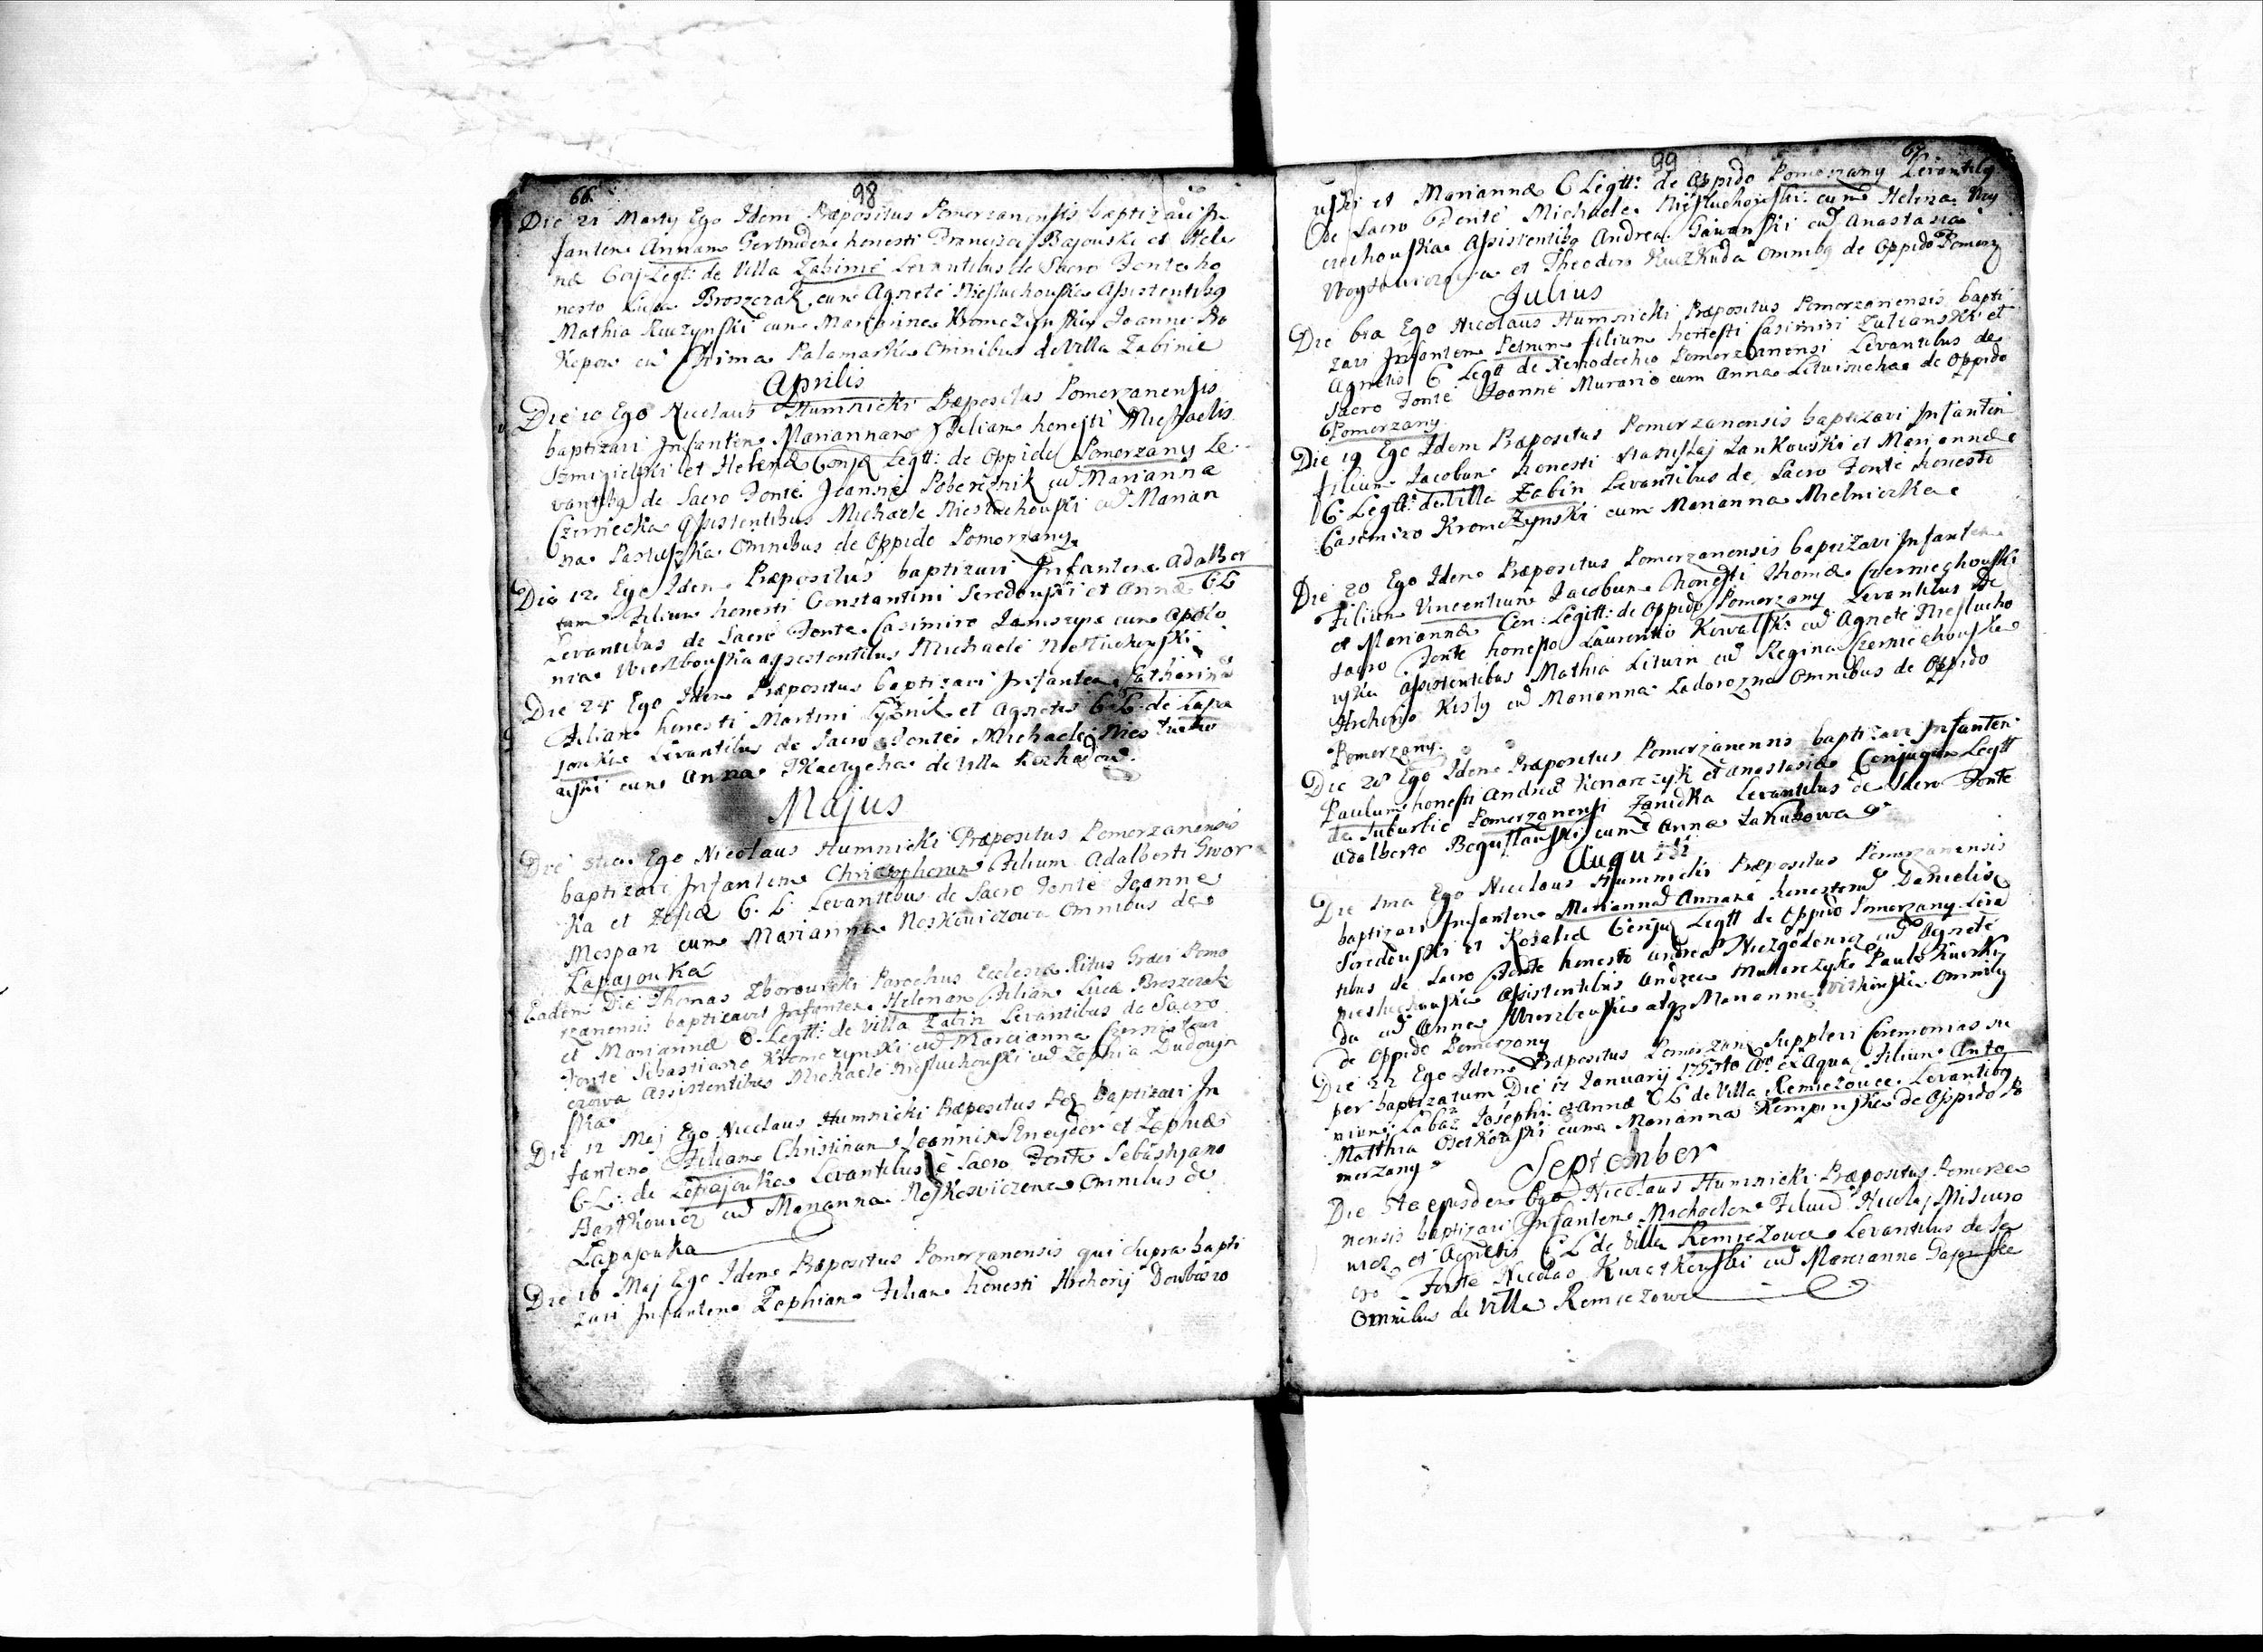 66
98
Die 21 Martij Ego Idem Præpositus Pomorzanensis baptizavi In
fantem Annam Gertrudem honesti Francisci Bajouski et Hele
næ Conj Legt: de Villa Zabinie Levantibus de Sacro Fonte ho
nesto Luca Broszczak cum Agnete Niesluchouska Assistentibg
Mathia Kuczynski cum Marianna Kromczynska Joanne Pro
Kopow cu Palamarka Omnibus de Villa Zabinie
Aprilis
Die 10 Ego Nicolaus Humnicki Præpositus Pomorzanensis
baptizavi Infantem Mariannam Filiam honesti Michaelis
Szmigielski et Helenæ Conj Legtt: de Oppido Pomorzany Le
vantibg de Sacro Fonte Joanne Pobereznik cu Marianna
Czerniecka Assistentibus Michaele Niesluchouski cu Marian
na Pastuszka Omnibus de Oppido Pomorzany
Die 12 Ego Idem Præpositus baptizavi Infantem Adalber
tum Filium honesti Constantini Seredouski et Annæ CL
Levantibus de Sacro Fonte Casimiro cum Apolo
nia Wierzbouska assistentibus Michaele Niesluchouski
Die 24 Ego Idem Præpositus baptizavi Infantem Catherina
Filiam honesti Martini et Agnetis C L de Lapa
jouka Levantibus de Sacro Fonte Michaele Niesłucho
uski cum Anna Tkaczycha de Villa
Majus
Die Ego Nicolaus Humnicki Præpositus Pomorzanensis
baptizavi Infantem Christopherum Filium Adalberti Swor
Ka et Zofiæ C. L. Levantibus de Sacro Fonte Joanne
Mospan cum Marianna Noskowiczowa Omnibus de
Lapajouka
Eadem Die Thomas Zborouski Parochus Ecclesiæ Ritus Græci Pomo
rzanensis baptizavit Infantem Helenam Filiam Lucæ Broszczak
et Mariannæ C. Legtt: de Villa Zabin Levantibus de Sacro
Fonte Sebastiano Kromczynski cu Marianna
czowa Assistentibus Michaele Niesluchouski cu Zophia Dudouja
ska
Die 12 Maj Ego Nicolaus Humnicki Præpositus baptizavi In
fantem Filiam Christinam Joannis Sznayder et Zophiæ
C L: de Lapajouka Levantibus è Sacro Fonte Sebastyano
Bartkowicz cu Marianna Noskowiczena Omnibus de
Lapajouka
Die 16 Maj Ego Idem Præpositus Pomorzanensis qui supra bapti
zavi Infantem Zophiam Filiam honesti Hrehorij Dombro
99
67
uski et Mariannæ C Legtt: de Oppido Pomorzany Levantibg
de Sacro Fonte Michaele Niesluchouski cum Helena
Assistentibg Andrea cu Anastasia
et Theodoro Omnibg de Oppido Pomorz
Julius
Die 6ta Ego Nicolaus Humnicki Præpositus Pomorzanensis bapti
zavi Infantem Petrum filium honesti Casimiri Zulianski et
Agnetis C Legtt de Xenodochio Pomorzanensi Levantibus de
Sacro Fonte Joanne Murario cum Anna Lituinicha de Oppido
Pomorzany.
Die 19 Ego Idem Præpositus Pomorzanensis baptizavi Infantem
filium Jacobum honesti Stanislaj Jankowski et Mariannæ
C: Legtt: de Villa Zabin Levantibus de Sacro Fonte honesto
Casimiro Kromczynski cum Marianna Mielniczka
Die 20 Ego Idem Præpositus Pomorzanensis baptizavi Infantem
Filium Vincentium Jacobum honesti Thomæ Czerniechouski
et Mariannæ Con: Legitt: de Oppido Pomorzany Levantibus de
Sacro Fonte honesto Laurentio Kowalski cu Agnete Niesłucho
uska Assistentibus Mathia Lituin cu Regina Czerniechouska
Hrehorio Kisly cu Marianna Zadorozna Omnibus de Oppido
Pomorzany.
Die 28 Ego Idem Præpositus Pomorzanensis baptizavi Infantem
Paulum honesti Andreæ Konarczyk et Anastasiæ Conjugum Legtt
de Suburbio Pomorzanensi Zanidka Levantibus de Sacro Fonte
Adalberto Boguslauski cum Anna Jakubowa
Augusti
Die 1ma Ego Nicolaus Humnicki Præpositus Pomorzanensis
baptizavi Infantem Marianna Annam honestoru Danielis
Seredouski et Rosaliæ Conju Legtt de Oppido Pomorzany Leva
tibus de Sacro Fonte honesto Andrea Niezgodowicz cu Agnete
Niesluchouska Assistentibus Andrea Paulo
da cu Anna Wierzbouska atqz Marianna Witkouska Omnibg
de Oppido Pomorzany
Die 22 Ego Idem Præpositus Pomorzan: Supplevi Ceremonias su
per baptizatum Die 17 Januarij ex Aqua Filium Anto
nium Labaz Josephi et Annæ C L de Villa Remizowce Levantibg
Matthia cum Marianna Kempinska de Oppido Po
morzany
September
Die 5ta ejusdem Ego Nicolaus Humnicki Præpositus Pomorza
nensis baptizavi Infantem Michaelem Filiu Nicolaj
et Agnetis C L de Villa Remizowce Levantibus de Sa
cro Fonte Nicolao cu Marianna
Omnibus de Villa Remizowce